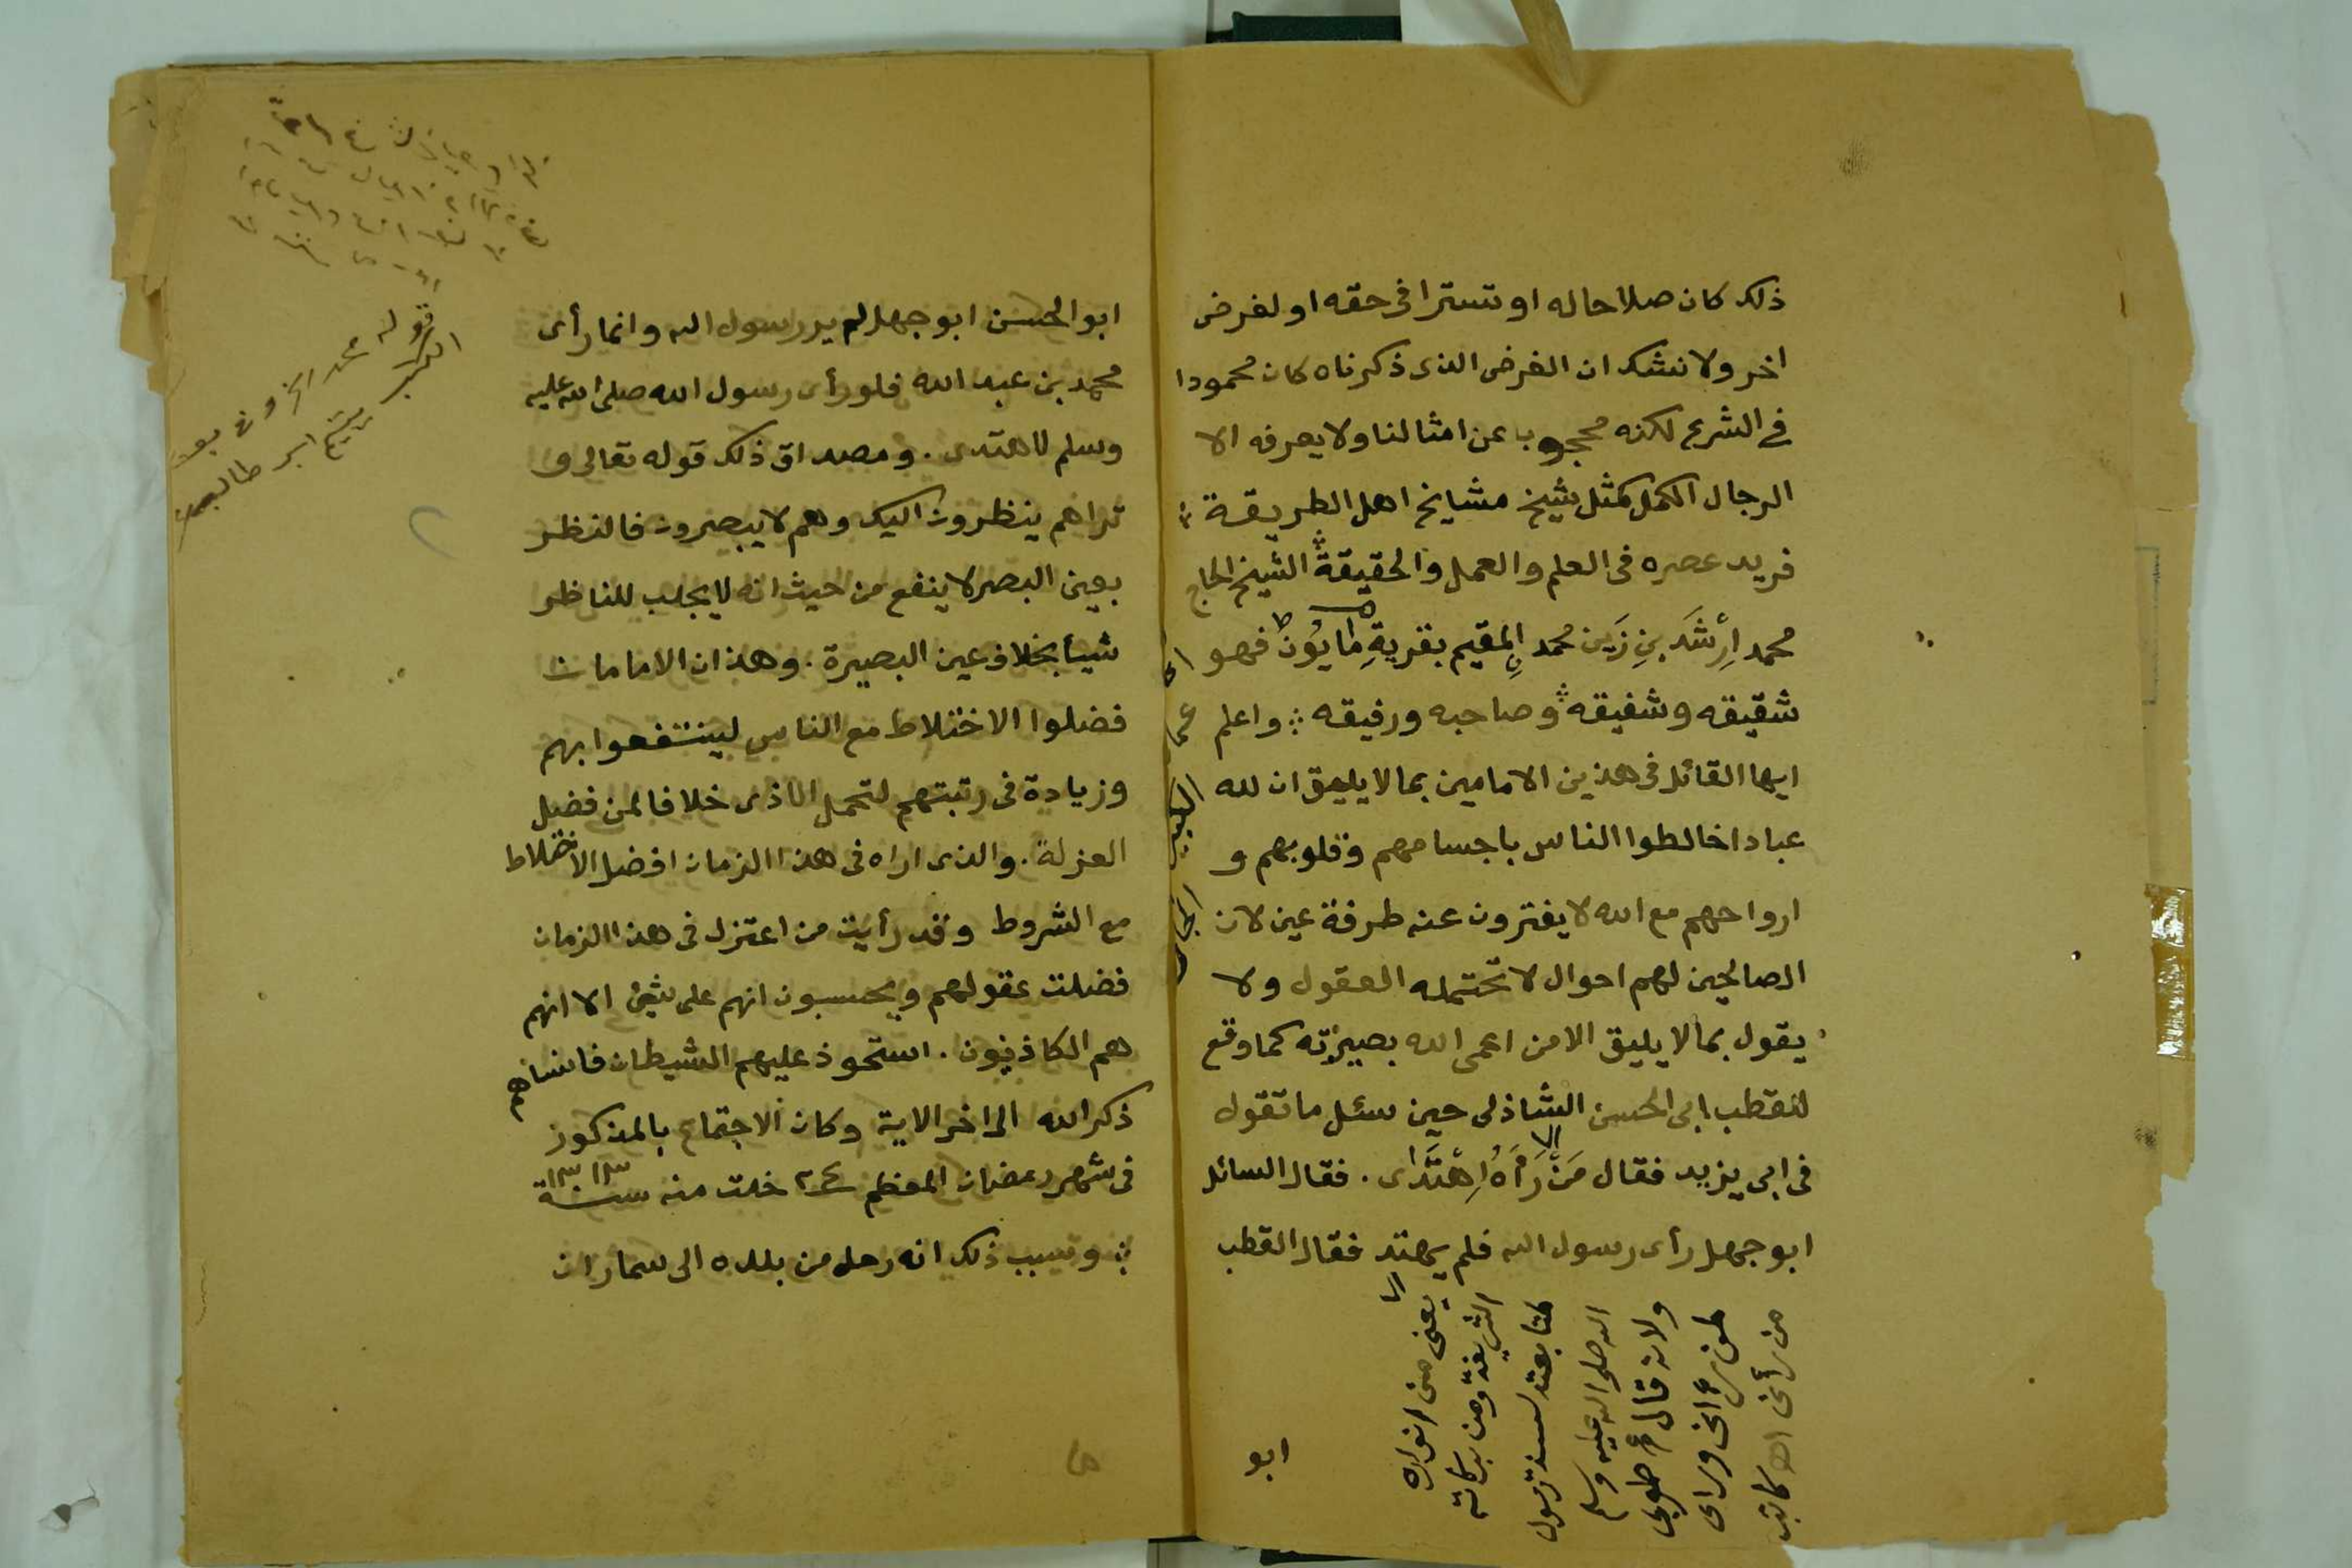 ذلك كان صلاحا له او تسترا فى حقه او لغرض
اخر ولا نشك ان الغرض الذى ذكرناه كان محمودا
فى الشرع لكنه محجوب عن امثالنا ولا يعرفه الا
الرجال الكمل كمثل شيخ مشايخ اهل الطريقة
فريد عصره فى العلم والعمل والحقيقة الشيخ الحاج
محمد أرشَد بنِ زَين محمد المقيم بقريةِ فهو
شقيقه وشفيقه وصاحبه ورفيقه واعلم
ايها القائل فى هذين الامامين بما لا يليق ان لله
عبادا خالطوا الناس باجسامهم وقلوبهم و
ارواحهم مع الله لا يفترون عنه طرفة عين لان
الصالحين لهم احوال لا تحتمله العقول ولا
يقول بما لا يليق الا من اعمى الله بصيرته كما وقع
للقطب ابى الحسن الشاذلى حين سئل ما تقول
فى ابى يزيد فقال مَنْ رَآهُ اِهْتَدَى. فقال السائل
ابو جهل رأى رسول الله فلم يهتد فقال القطب
يعنى من انواره
الشريفة ومن بركاته
لمتابعته لسنة رسول
الله صلى الله عليه وسلم
ولانه قال طوبى
لمن رآنى ورأى
من رآنى اهـ كاتبه
ابو
ابو الحسن ابو جهل لم ير رسول الله وانما رأى
محمد بن عبد الله فلو رأى رسول الله صلى الله عليه
وسلم لاهتدى. ومصداق ذلك قوله تعالى و
تراهم ينظرون اليك وهم لا يبصرون فالنظر
بعين البصر لا ينفع من حيث انه لا يجلب للناظر
شيأ بخلاف عين البصيرة. وهذان الامامان
فضلوا الاختلاط مع الناس لينتفعوا بهم
وزيادة فى رتبتهم لتحمل الاذى خلافا لمن فضل
العزلة. والذى اراه فى هذا الزمان افضل الاختلاط
مع الشروط وقد رأيت من اعتزل فى هذا الزمان
فضلت عقولهم ويحسبون انهم على شئ الا انهم
هم الكاذبون. استحوذ عليهم الشيطان فانساهم
ذكر الله الى اخر الاية وكان الاجتماع بالمذكور
فى شهر رمضان المعظم ٢٤ خلت منه سنة ١٣١٣
وسبب ذلك انه رحل من بلده الى سماران